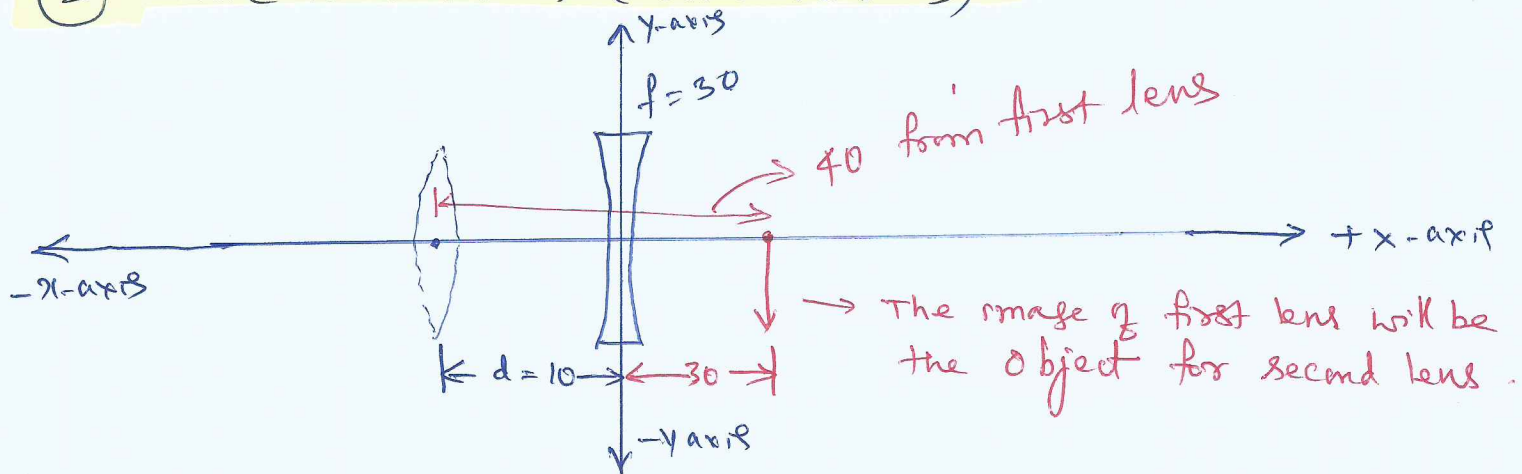 Y-axis
f=30
40 from first lens
+x-axis
-x-axis
→ The image of first lens will be
the object for second lens.
d=10
30
-y axis